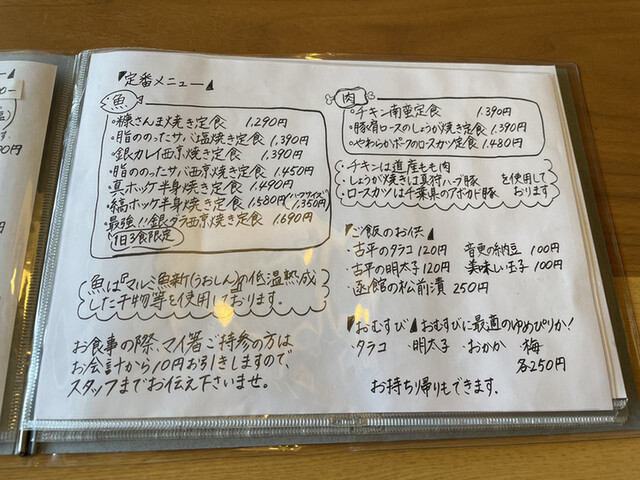 『定番メニュー』
魚
・糠さんま焼き定食 1,290円
・脂ののったサバ塩焼き定食 1,390円
・銀カレイ西京焼き定食 1,390円
・脂ののったサバ西京焼き定食 1,450円
・真ホッケ半身焼き定食 1,490円
・縞ホッケ半身焼き定食 1,580円(ハーフサイズ 1,350円)
・最強!!銀ダラ西京焼き定食 1,690円
1日3食限定
魚は『マルミ魚新(うおしん)』の低温熟成
した干物等を使用しております。
お食事の際、マイ箸ご持参の方は
お会計から10円お引きしますので、
スタッフまでお伝え下さいませ。
肉
・チキン南蛮定食 1,390円
・豚肩ロースのしょうが焼き定食 1,390円
・やわらかポークのロースカツ定食 1,480円
・チキンは道産もも肉
・しょうが焼きは真狩ハーブ豚 を使用して
・ロースカツは千葉県のアボカド豚 おります
『ご飯のお供』
・古平のタラコ 120円 音更の納豆 100円
・古平の明太子 120円 美味しい玉子 100円
・函館の松前漬 250円
『おむすび』おむすびに最適のゆめぴりか!
・タラコ ・明太子 ・おかか ・梅
各250円
お持ち帰りもできます。